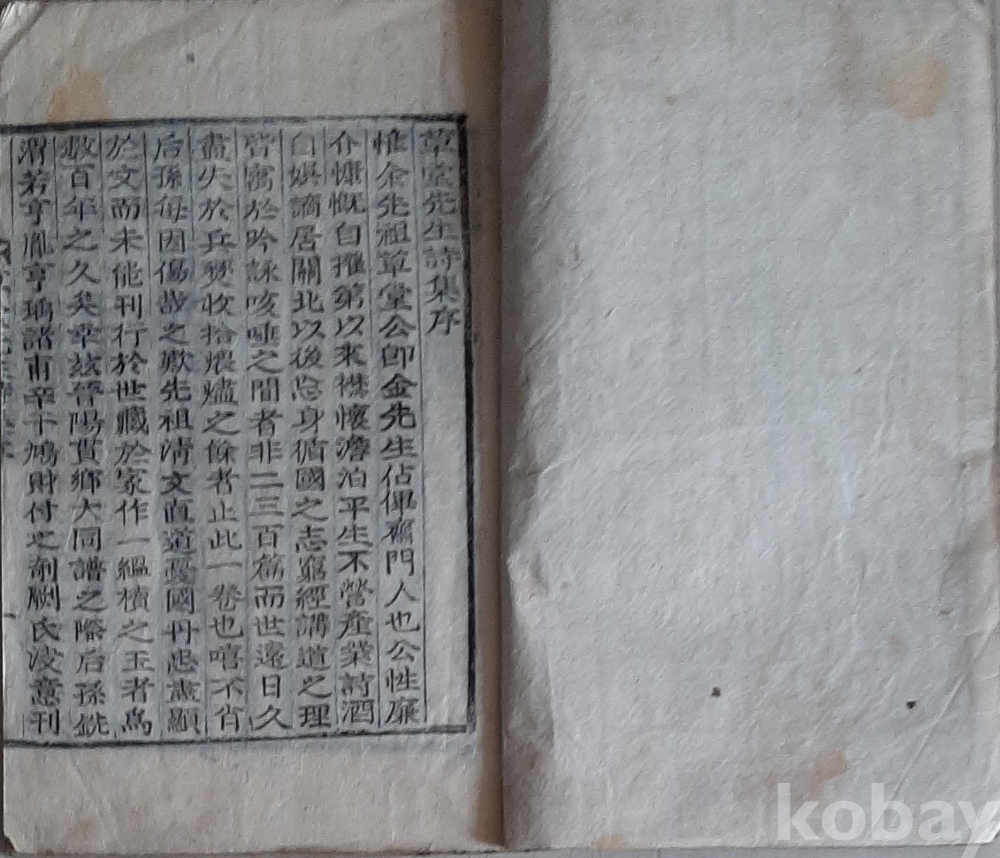 草堂先生詩集序
惟余先祖草堂公卽金先生佔俾齋門人也公性廉
介慷慨自擢第以來襟懷澹泊平生不營產業詩酒
自娛謫居關北以後忘身循國之志窮經講道之理
皆寓於吟詠咳唾之間者非二三百篇而世遠日久
盡失於兵燹收拾煨燼之餘者止此一卷也嘻不肖
后孫每因傷哉之歎先祖淸文直道憂國丹忠盡顯
於文而未能刊行於世藏於家作一韞櫝之玉者爲
數百年之久矣幸玆晉陽貫鄕大同譜之際后孫銑
渭若亨胤亨瑀諸甫辛干鳩財付之剞劂氏漫意刊
一
kobay